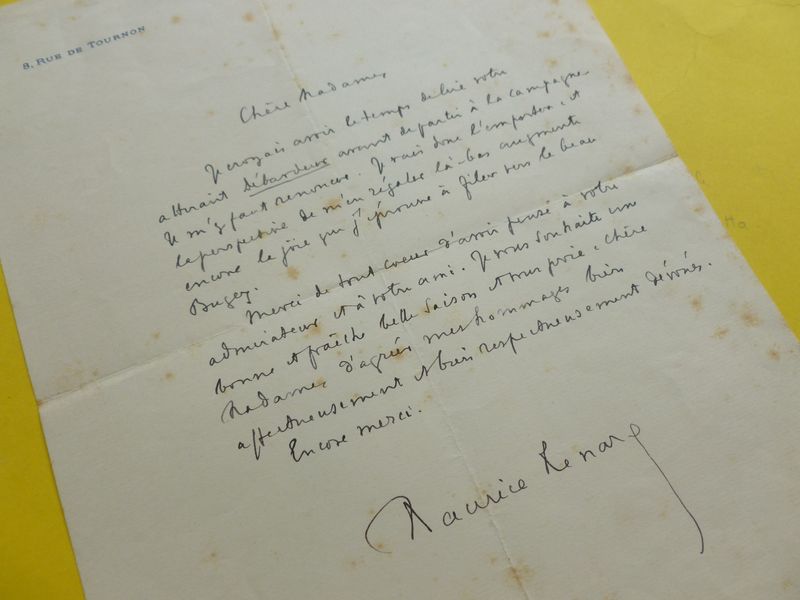 8, RUE DE TOURNON
Chère Madame,
Je croyais avoir le temps de lire votre
attirant Débardeur avant de partir à la campagne.
Il m'y faut renoncer. Je vais donc l'emporter, et
la perspective de m'en régaler là-bas augmente
encore la joie que j'éprouve à filer vers le beau
Bugey.
Merci de tout coeur d'avoir pensé à votre
admirateur et à votre ami. Je vous souhaite une
bonne et fraîche belle saison et vous prie, chère
Madame, d'agréer mes hommages bien
affectueusement et bien respectueusement dévoués.
Encore merci.
Maurice Renard